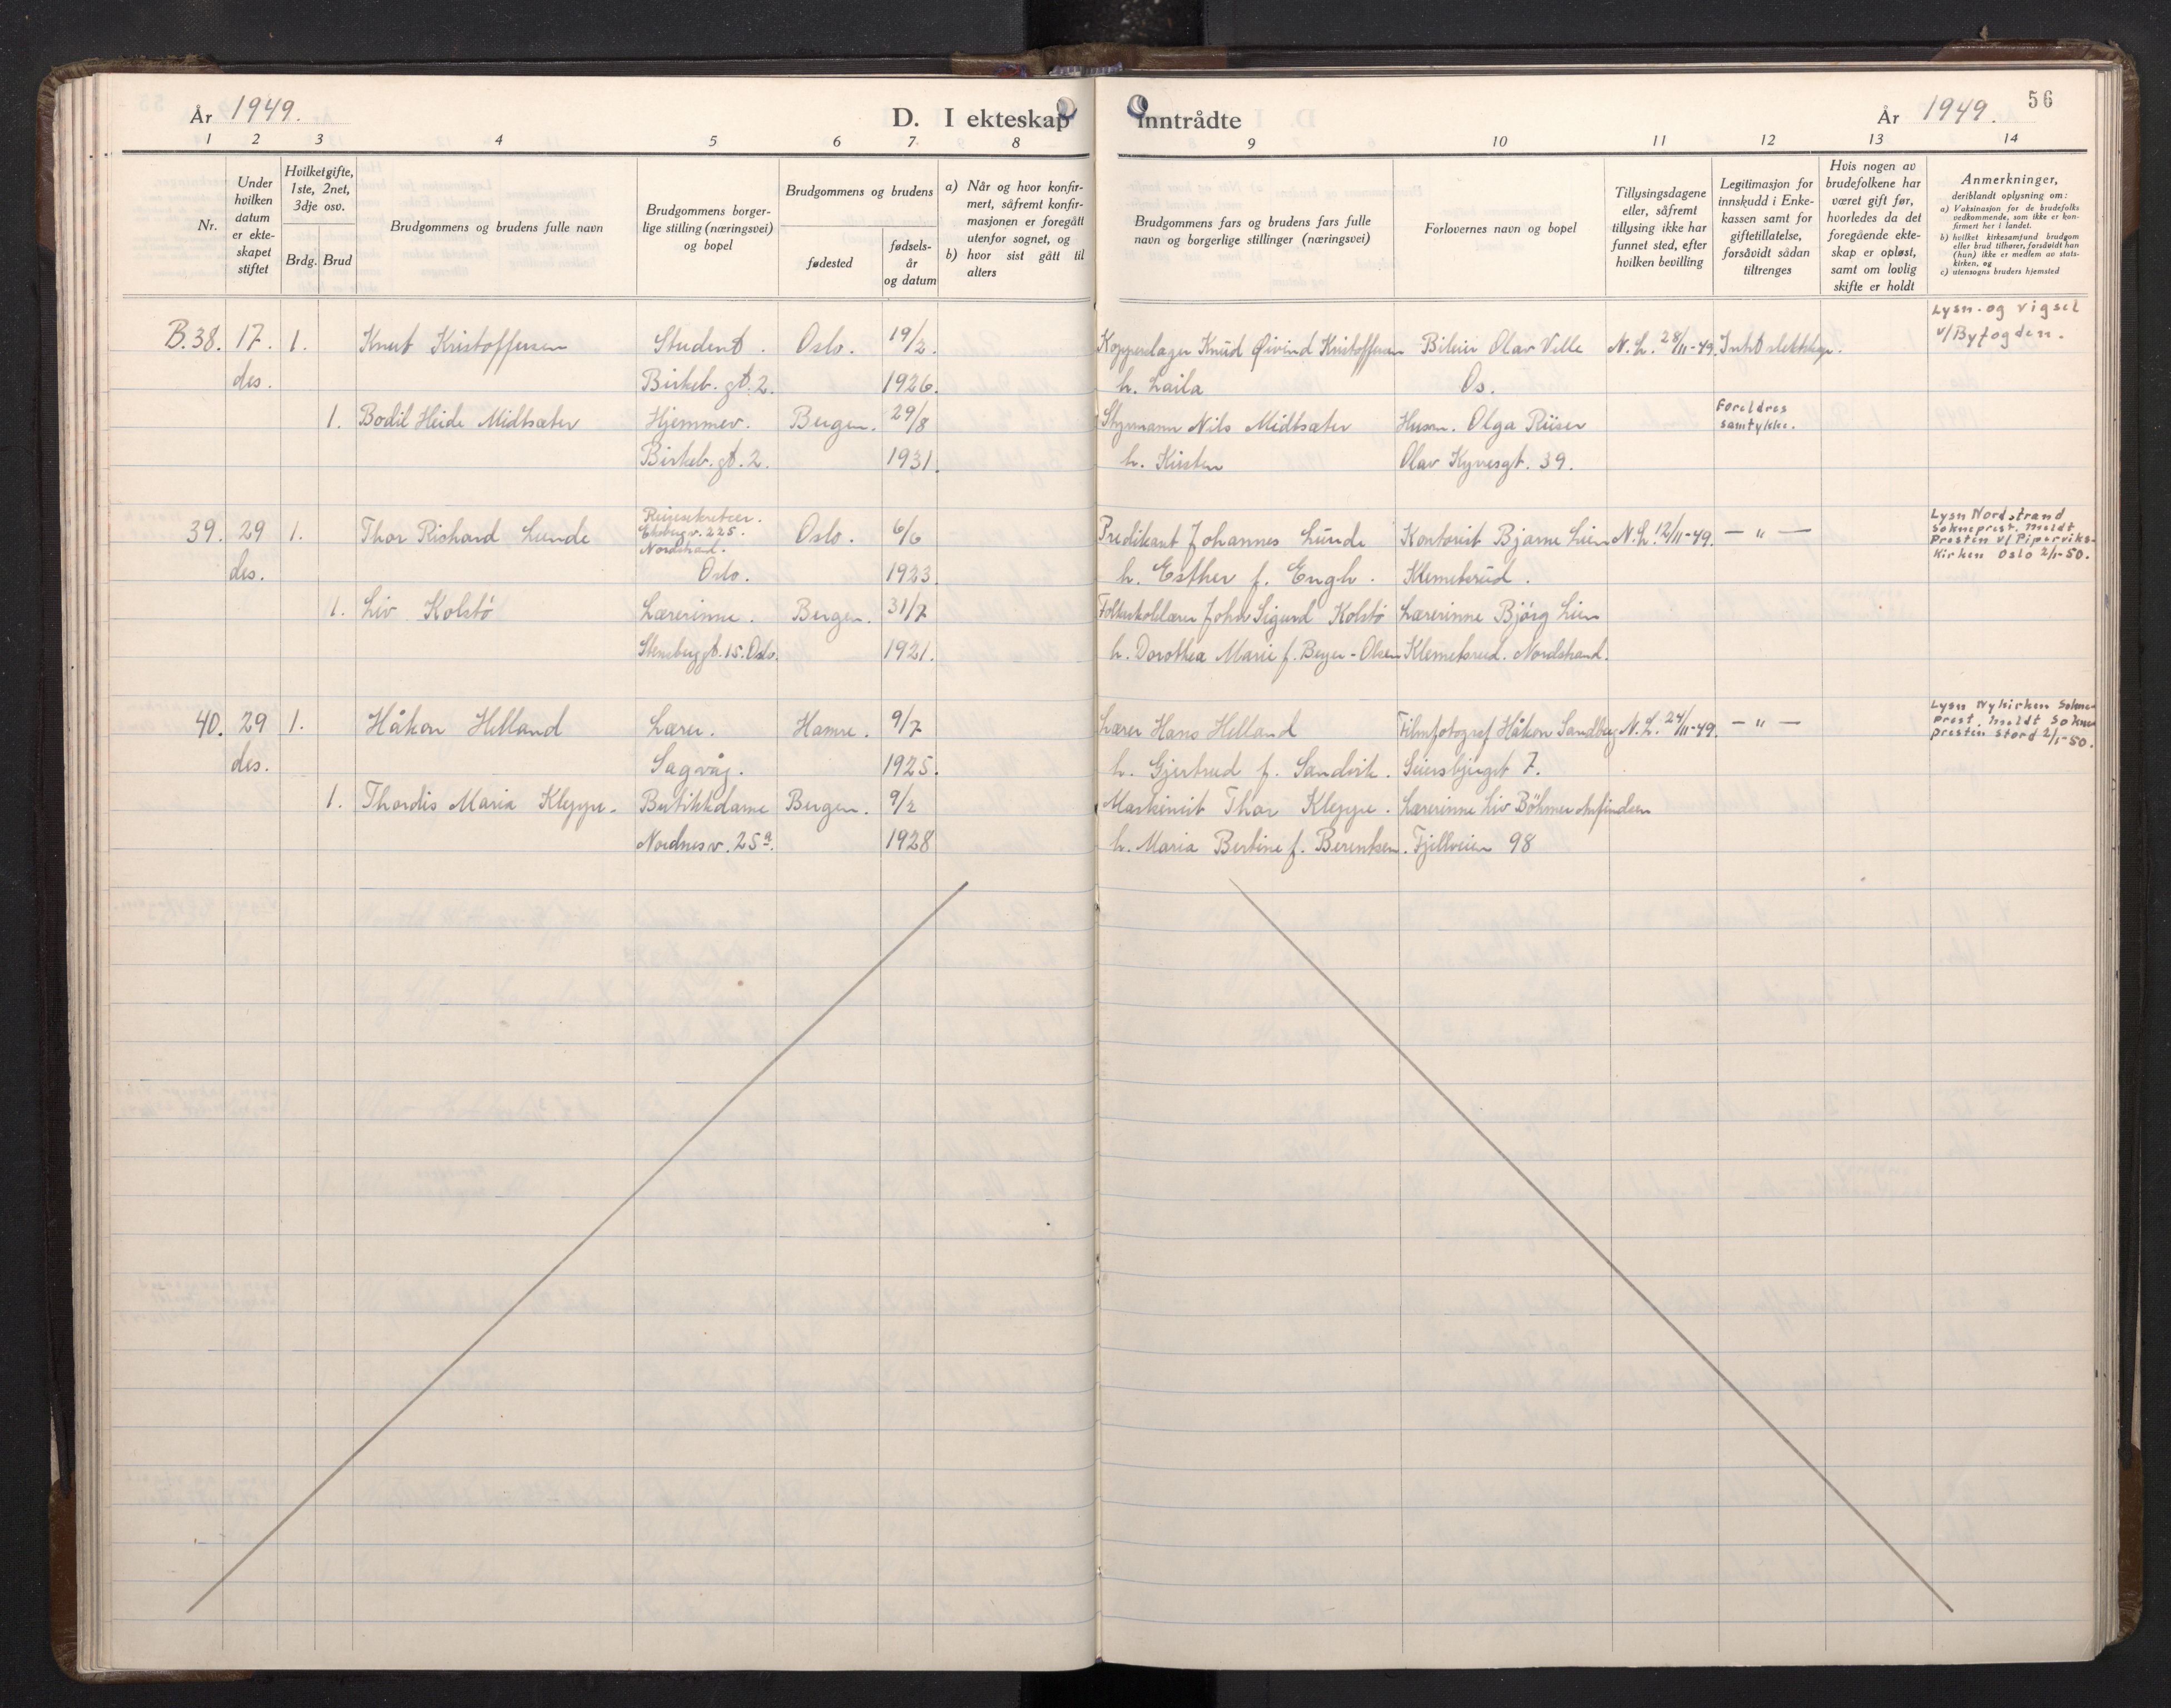 År 1949.
D. I ekteskap inntrådte
År 1949. 56
1 2 3 4 5 6 7 8 9 10 11 12 13 14
Nr.
Under hvilken datum er ekte-skapet stiftet
Hvilket gifte, 1ste, 2net, 3dje osv.
Brdg. Brud
Brudgommens og brudens fulle navn
Brudgommens borger-lige stilling (næringsvei) og bopel
Brudgommens og brudens
fødested
fødsels-år og datum
a) Når og hvor konfir-mert, såfremt konfir-masjonen er foregått utenfor sognet, og
b) hvor sist gått til alters
Brudgommens fars og brudens fars fulle navn og borgerlige stillinger (næringsvei)
Forlovernes navn og bopel
Tillysingsdagene eller, såfremt tillysing ikke har funnet sted, efter hvilken bevilling
Legitimasjon for innskudd i Enke-kassen samt for giftetillatelse, forsåvidt sådan tiltrenges
Hvis nogen av brudefolkene har været gift før, hvorledes da det foregående ekte-skap er opløst, samt om lovlig skifte er holdt
Anmerkninger,
deriblandt oplysning om:
a) Vaksinasjon for de brudefolks vedkommende, som ikke er kon-firmert her i landet.
b) hvilket kirkesamfund brudgom eller brud tilhører, forsåvidt han (hun) ikke er medlem av stats-kirken, og
c) utensogns bruders hjemsted
Lysn. og vigsel
v/Byfogden.
B.38. 17. 1. Knut Kristoffersen Student. Oslo. 19/2. Kopperslager Knud Øivind Kristoffersen Bileier Olav Ville N.L. 28/11-49. Intet slektskap.
des. Birkeb. gt. 2. 1926. h. Laila Os.
1. Bodil Heide Midtsæter Hjemmev. Bergen. 29/8 Styrmann Nils Midtsæter Husm. Olga Riiser Foreldres samtykke.
Birkeb. gt. 2. 1931. h. Kirsten Olav Kyrresgt. 39.
39. 29 1. Thor Richard Lunde Reisesekretær. Ekebergv. 225. Nordstrand. Oslo. 6/6 Predikant Johannes Lunde Kontorist Bjarne Lien N.L. 12/11-49. — " —
Lysn Nordstrand
Sokneprest. Meldt
Presten v/ Piperviks-
Kirken Oslo 2/1-50.
des. Oslo. 1923. h. Esther f. Engh. Klemetsrud.
1. Liv Kolstø Lærerinne. Bergen. 31/7 Folkeskolelærer John Sigurd Kolstø Lærerinne Bjørg Lien
Stensberggt. 15. Oslo. 1921. h. Dorothea Marie f. Beyer-Olsen Klemetsrud. Nordstrand.
40. 29 1. Håkon Helland Lærer. Hamre. 9/7 Lærer Hans Helland Filmfotograf Håkon Sandberg N.L. 24/11-49. — " —
Lysn Nykirken Sokne-
prest. Meldt Sokne
presten Stord 2/1-50.
des. Sagvåg. 1925. h. Gjertrud f. Sandvik. Seiersbjerget 7.
1. Thordis Maria Kleppe. Butikkdame Bergen. 9/2 Maskinist Thor Kleppe. Lærerinne Liv Böhmer Arfindsen
Nordnesv. 25a. 1928 h. Maria Bertine f. Berentsen. Fjellveien 98